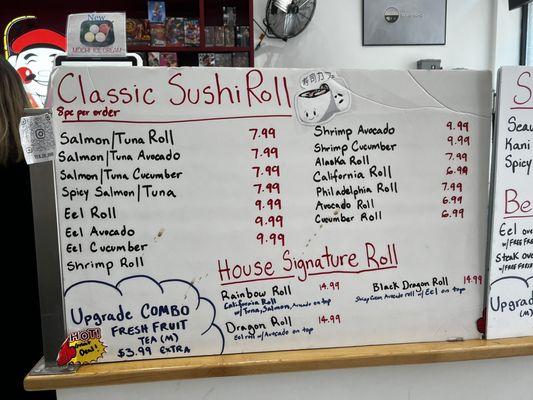 New
MOCHI ICE CREAM
Classic Sushi Roll
8pc per order
Salmon/Tuna Roll 7.99
Salmon/Tuna Avocado 7.99
Salmon/Tuna Cucumber 7.99
Spicy Salmon/Tuna 7.99
Eel Roll 9.99
Eel Avocado 9.99
Eel Cucumber 9.99
Shrimp Roll
寿司力
Shrimp Avocado 9.99
Shrimp Cucumber 9.99
Alaska Roll 7.99
California Roll 6.99
Philadelphia Roll 7.99
Avocado Roll 6.99
Cucumber Roll 6.99
House Signature Roll
Rainbow Roll 14.99
California Roll
w/Tuna, Salmon, Avocado on top
Dragon Roll 14.99
Eel roll w/Avocado on top
Black Dragon Roll 14.99
Avocado roll w/Eel on top
Upgrade COMBO
FRESH FRUIT
TEA (M)
$3.99 EXTRA
HOT!
Deal
S
Seau
Kani
Spicy
Be
Eel ove
w/FREE
Steak ove
w/FREE
Upgra
(M)